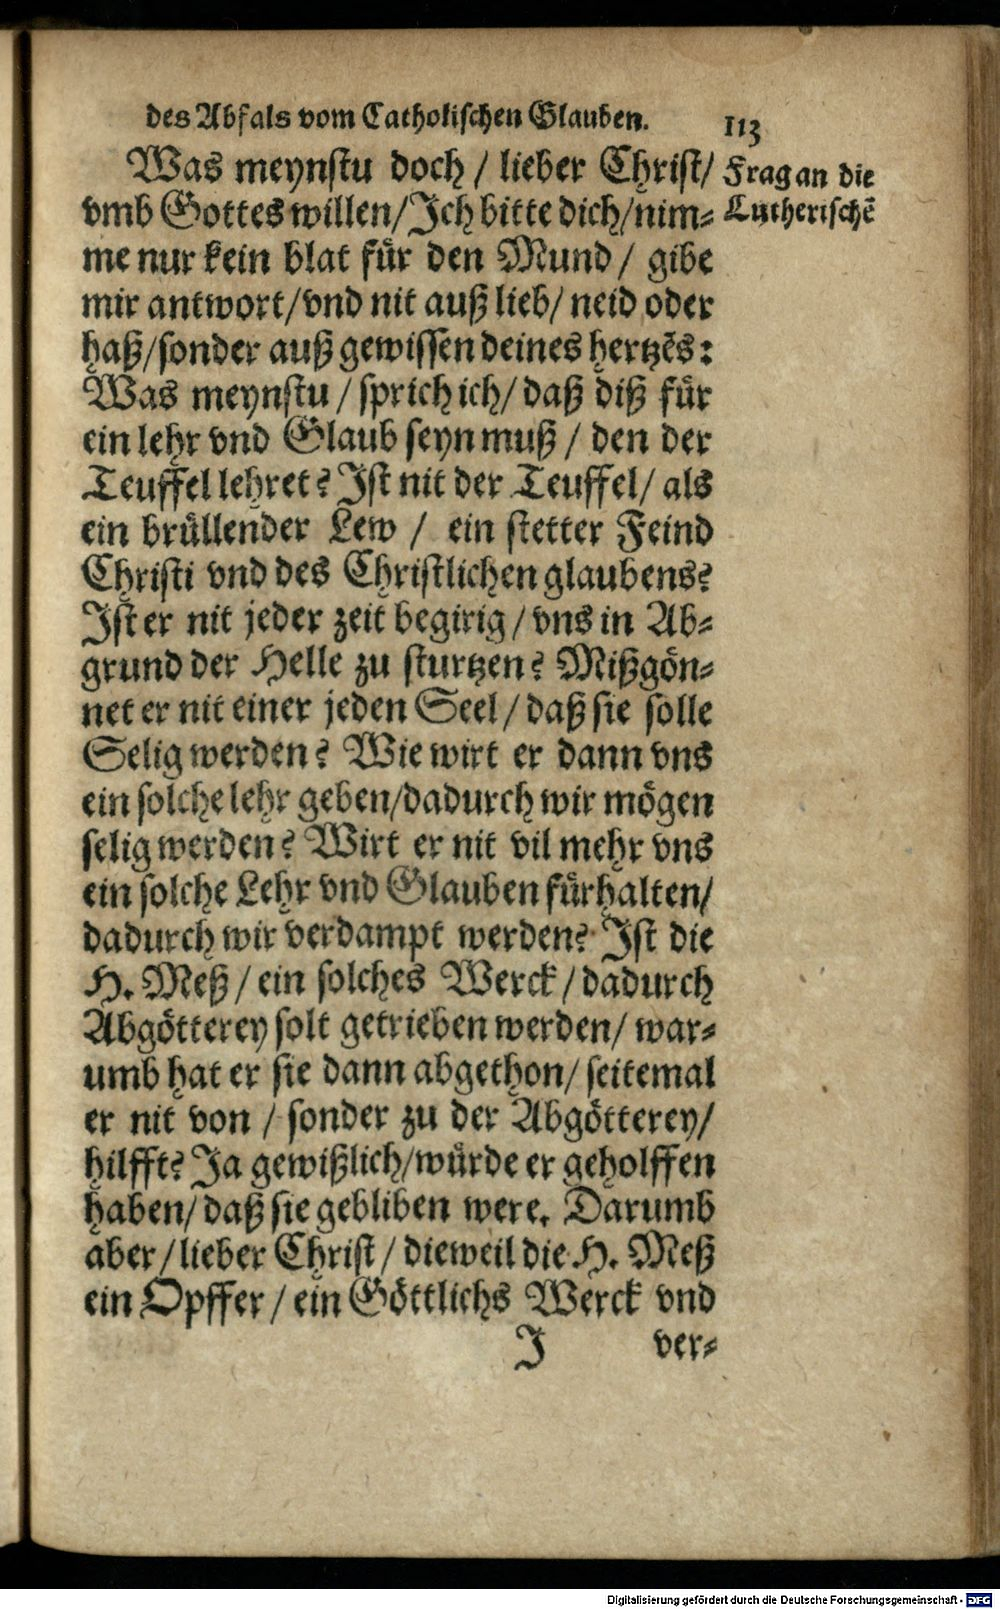 des Abfals vom Catholischen Glauben. 113
Was meynstu doch / lieber Christ/
vmb Gottes willen/Ich bitte dich/nim⸗
me nur kein blat fuͤr den Mund / gibe
mir antwort/vnd nit auß lieb/ neid oder
haß/sonder auß gewissen deines hertzēs:
Was meynstu / sprich ich/ daß diß fuͤr
ein lehr vnd Glaub seyn muß / den der
Teuffel lehret? Ist nit der Teuffel/ als
ein bruͤllender Lew / ein stetter Feind
Christi vnd des Christlichen glaubens?
Ist er nit jeder zeit begirig/vns in Ab⸗
grund der Helle zu sturtzen? Mißgoͤn⸗
net er nit einer jeden Seel/ daß sie solle
Selig werden? Wie wirt er dann vns
ein solche lehr geben/dadurch wir moͤgen
selig werden? Wirt er nit vil mehr vns
ein solche Lehr vnd Glauben fuͤrhalten/
dadurch wir verdampt werden? Ist die
H. Meß/ ein solches Werck/dadurch
Abgoͤtterey solt getrieben werden/ war⸗
umb hat er sie dann abgethon/ seitemal
er nit von / sonder zu der Abgoͤtterey/
hilfft? Ja gewißlich/wuͤrde er geholffen
haben/ daß sie gebliben were. Darumb
aber/lieber Christ/ dieweil die H. Meß
ein Opffer/ ein Goͤttlichs Werck vnd
I ver⸗
Frag an die
Lutherischē
Digitalisierung gefördert durch die Deutsche Forschungsgemeinschaft - DFG